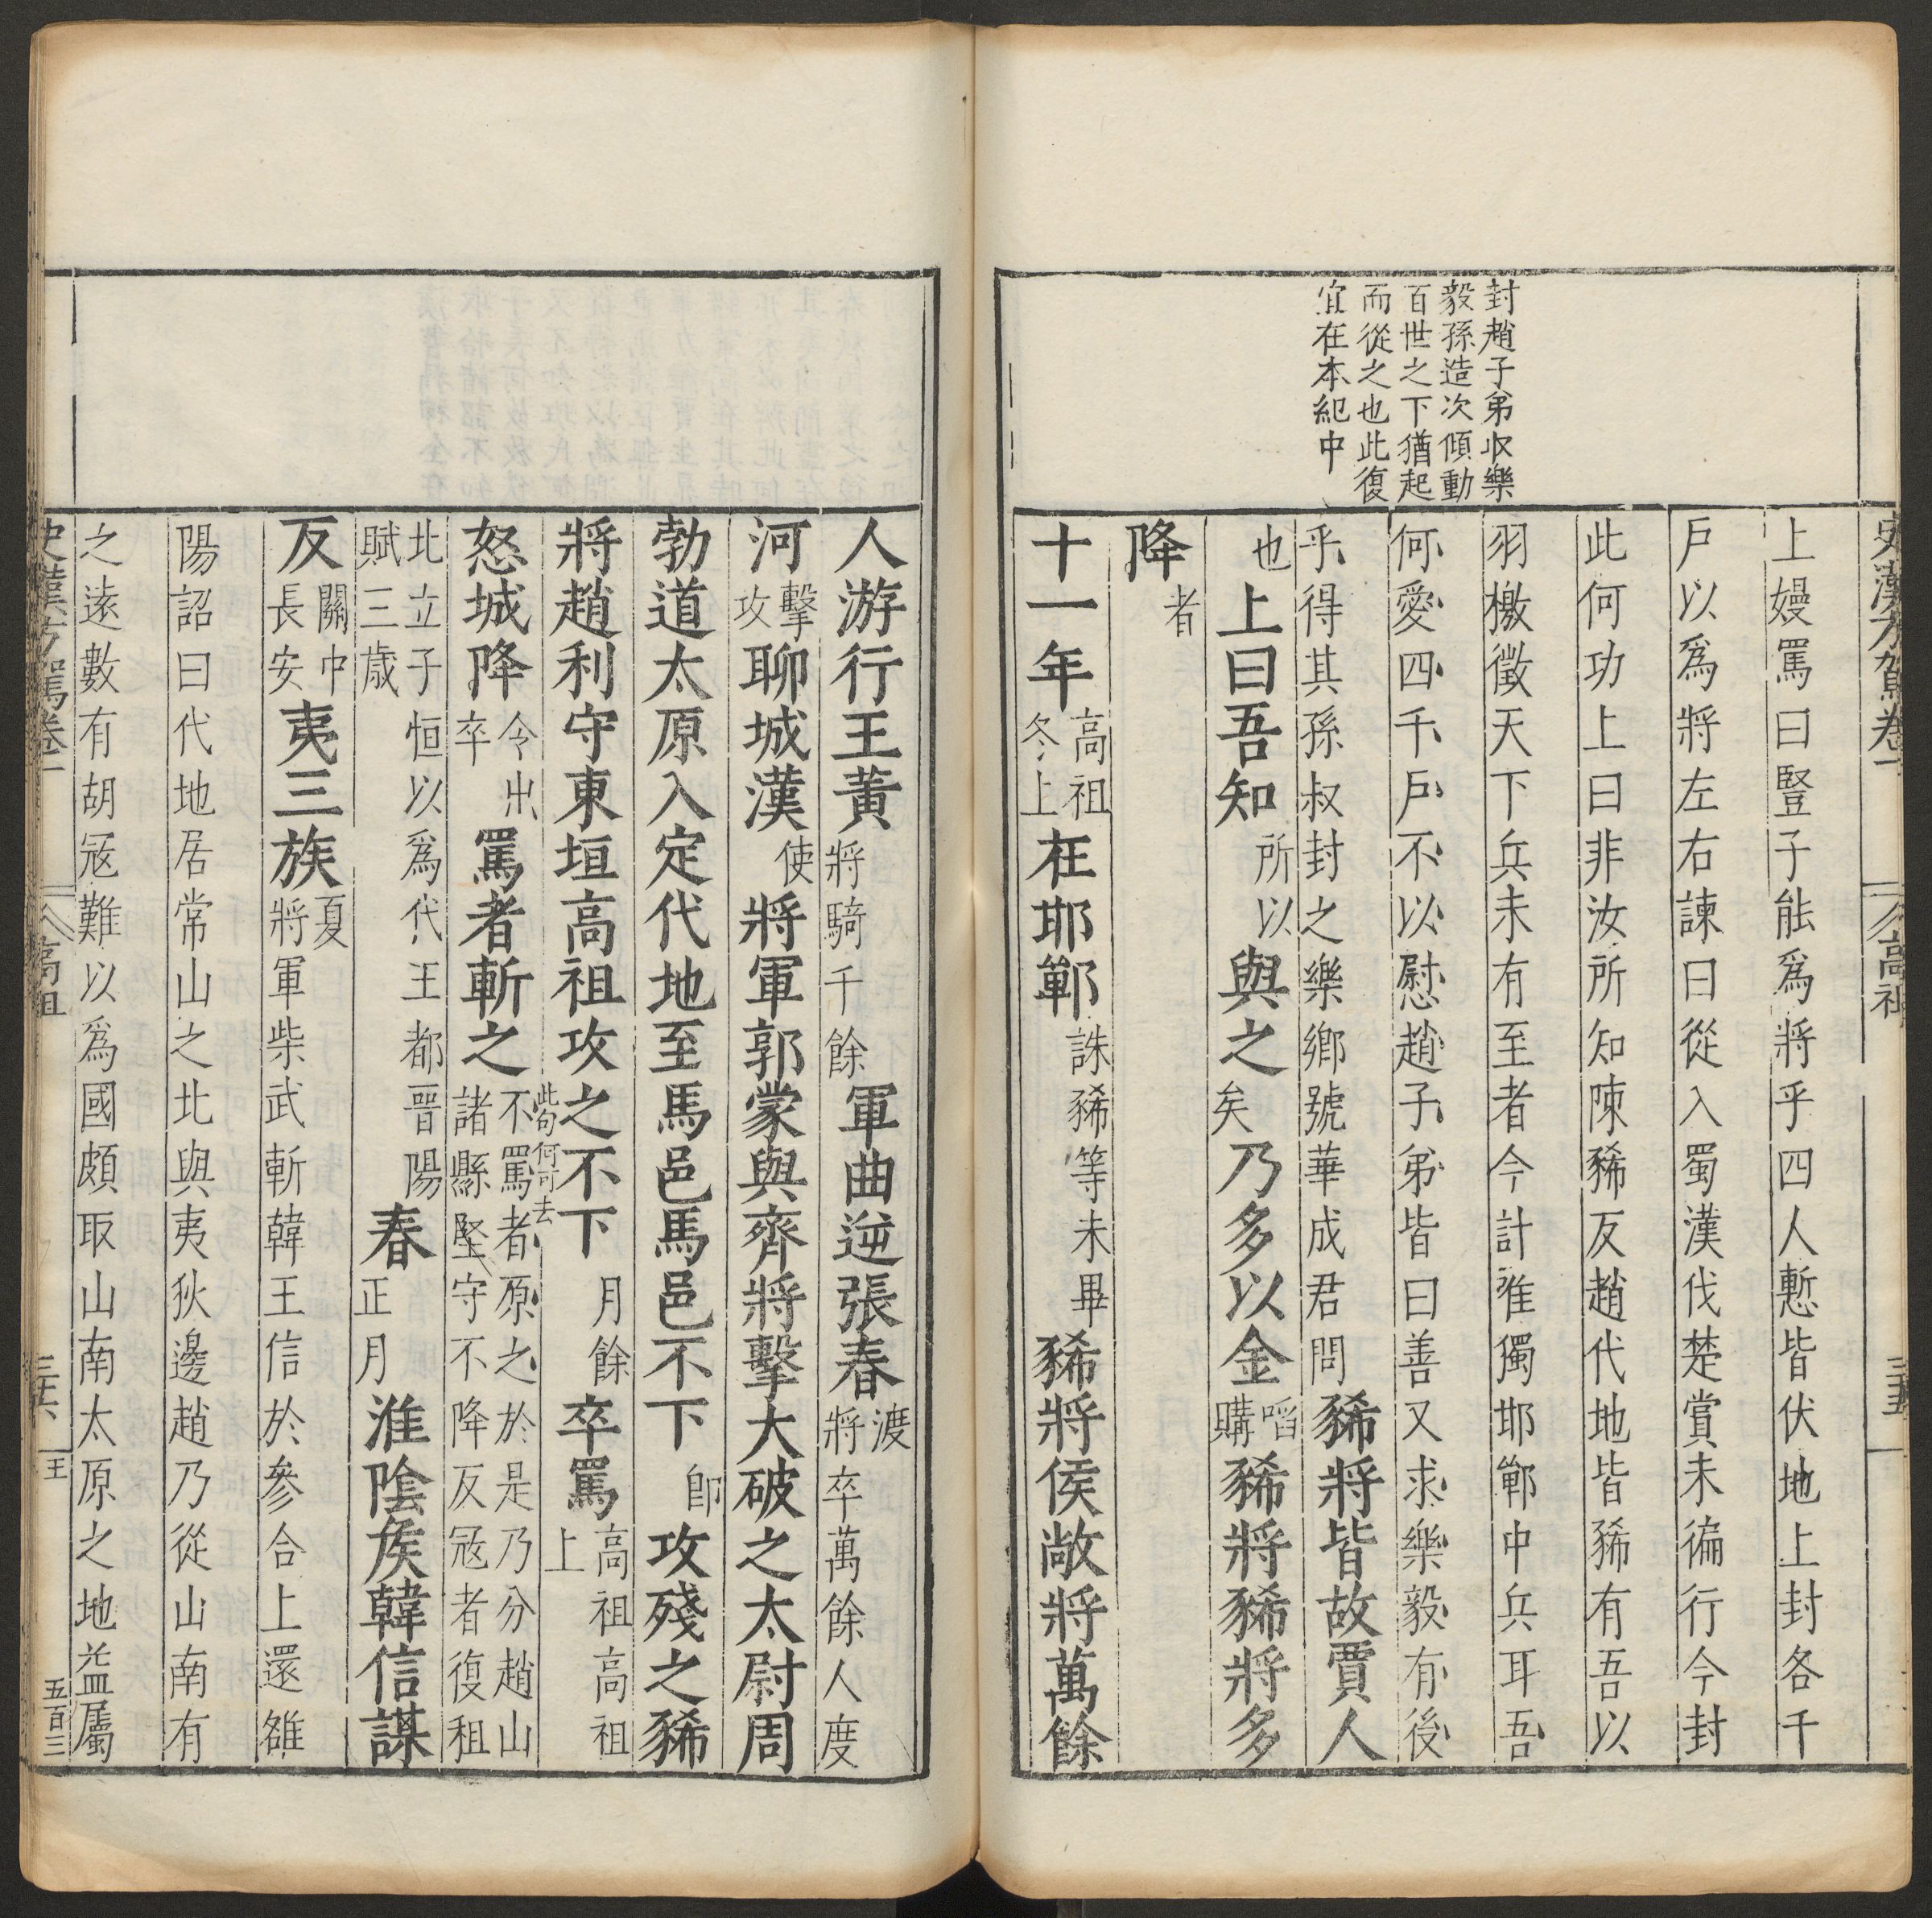 史漢方駕卷一
高祖
三十五
封趙子弟收樂
毅孫造次傾動
百世之下猶起
而從之也此復
宜在本紀中
上嫚罵曰豎子能爲將乎四人慙皆伏地上封各千
戶以爲將左右諫曰從入蜀漢伐楚賞未徧行今封
此何功上曰非汝所知陳豨反趙代地皆豨有吾以
羽檄徵天下兵未有至者今計唯獨邯鄲中兵耳吾
何愛四千戶不以慰趙子弟皆曰善又求樂毅有後
乎得其孫叔封之樂鄉號華成君問豨將皆故賈人
也上曰吾知所以與之矣乃多以金啗購豨將豨將多
降者
十一年高祖冬上在邯鄲誅豨等未畢豨將侯敞將萬餘
人游行王黃將騎千餘軍曲逆張春渡將卒萬餘人度
河擊攻聊城漢使將軍郭蒙與齊將擊大破之太尉周
勃道太原入定代地至馬邑馬邑不下卽攻殘之豨
將趙利守東垣高祖攻之不下月餘卒罵高祖上高祖
此句何可去
怒城降令出卒罵者斬之不罵者原之於是乃分趙山諸縣堅守不降反冦者復租
北立子恒以爲代王都晉陽賦三歲春正月淮陰矦韓信謀
反關中長安夷三族夏將軍柴武斬韓王信於參合上還雒
陽詔曰代地居常山之北與夷狄邊趙乃從山南有
之遠數有胡冦難以爲國頗取山南太原之地益屬
史漢方駕卷一
高祖
三十六
王
五百三